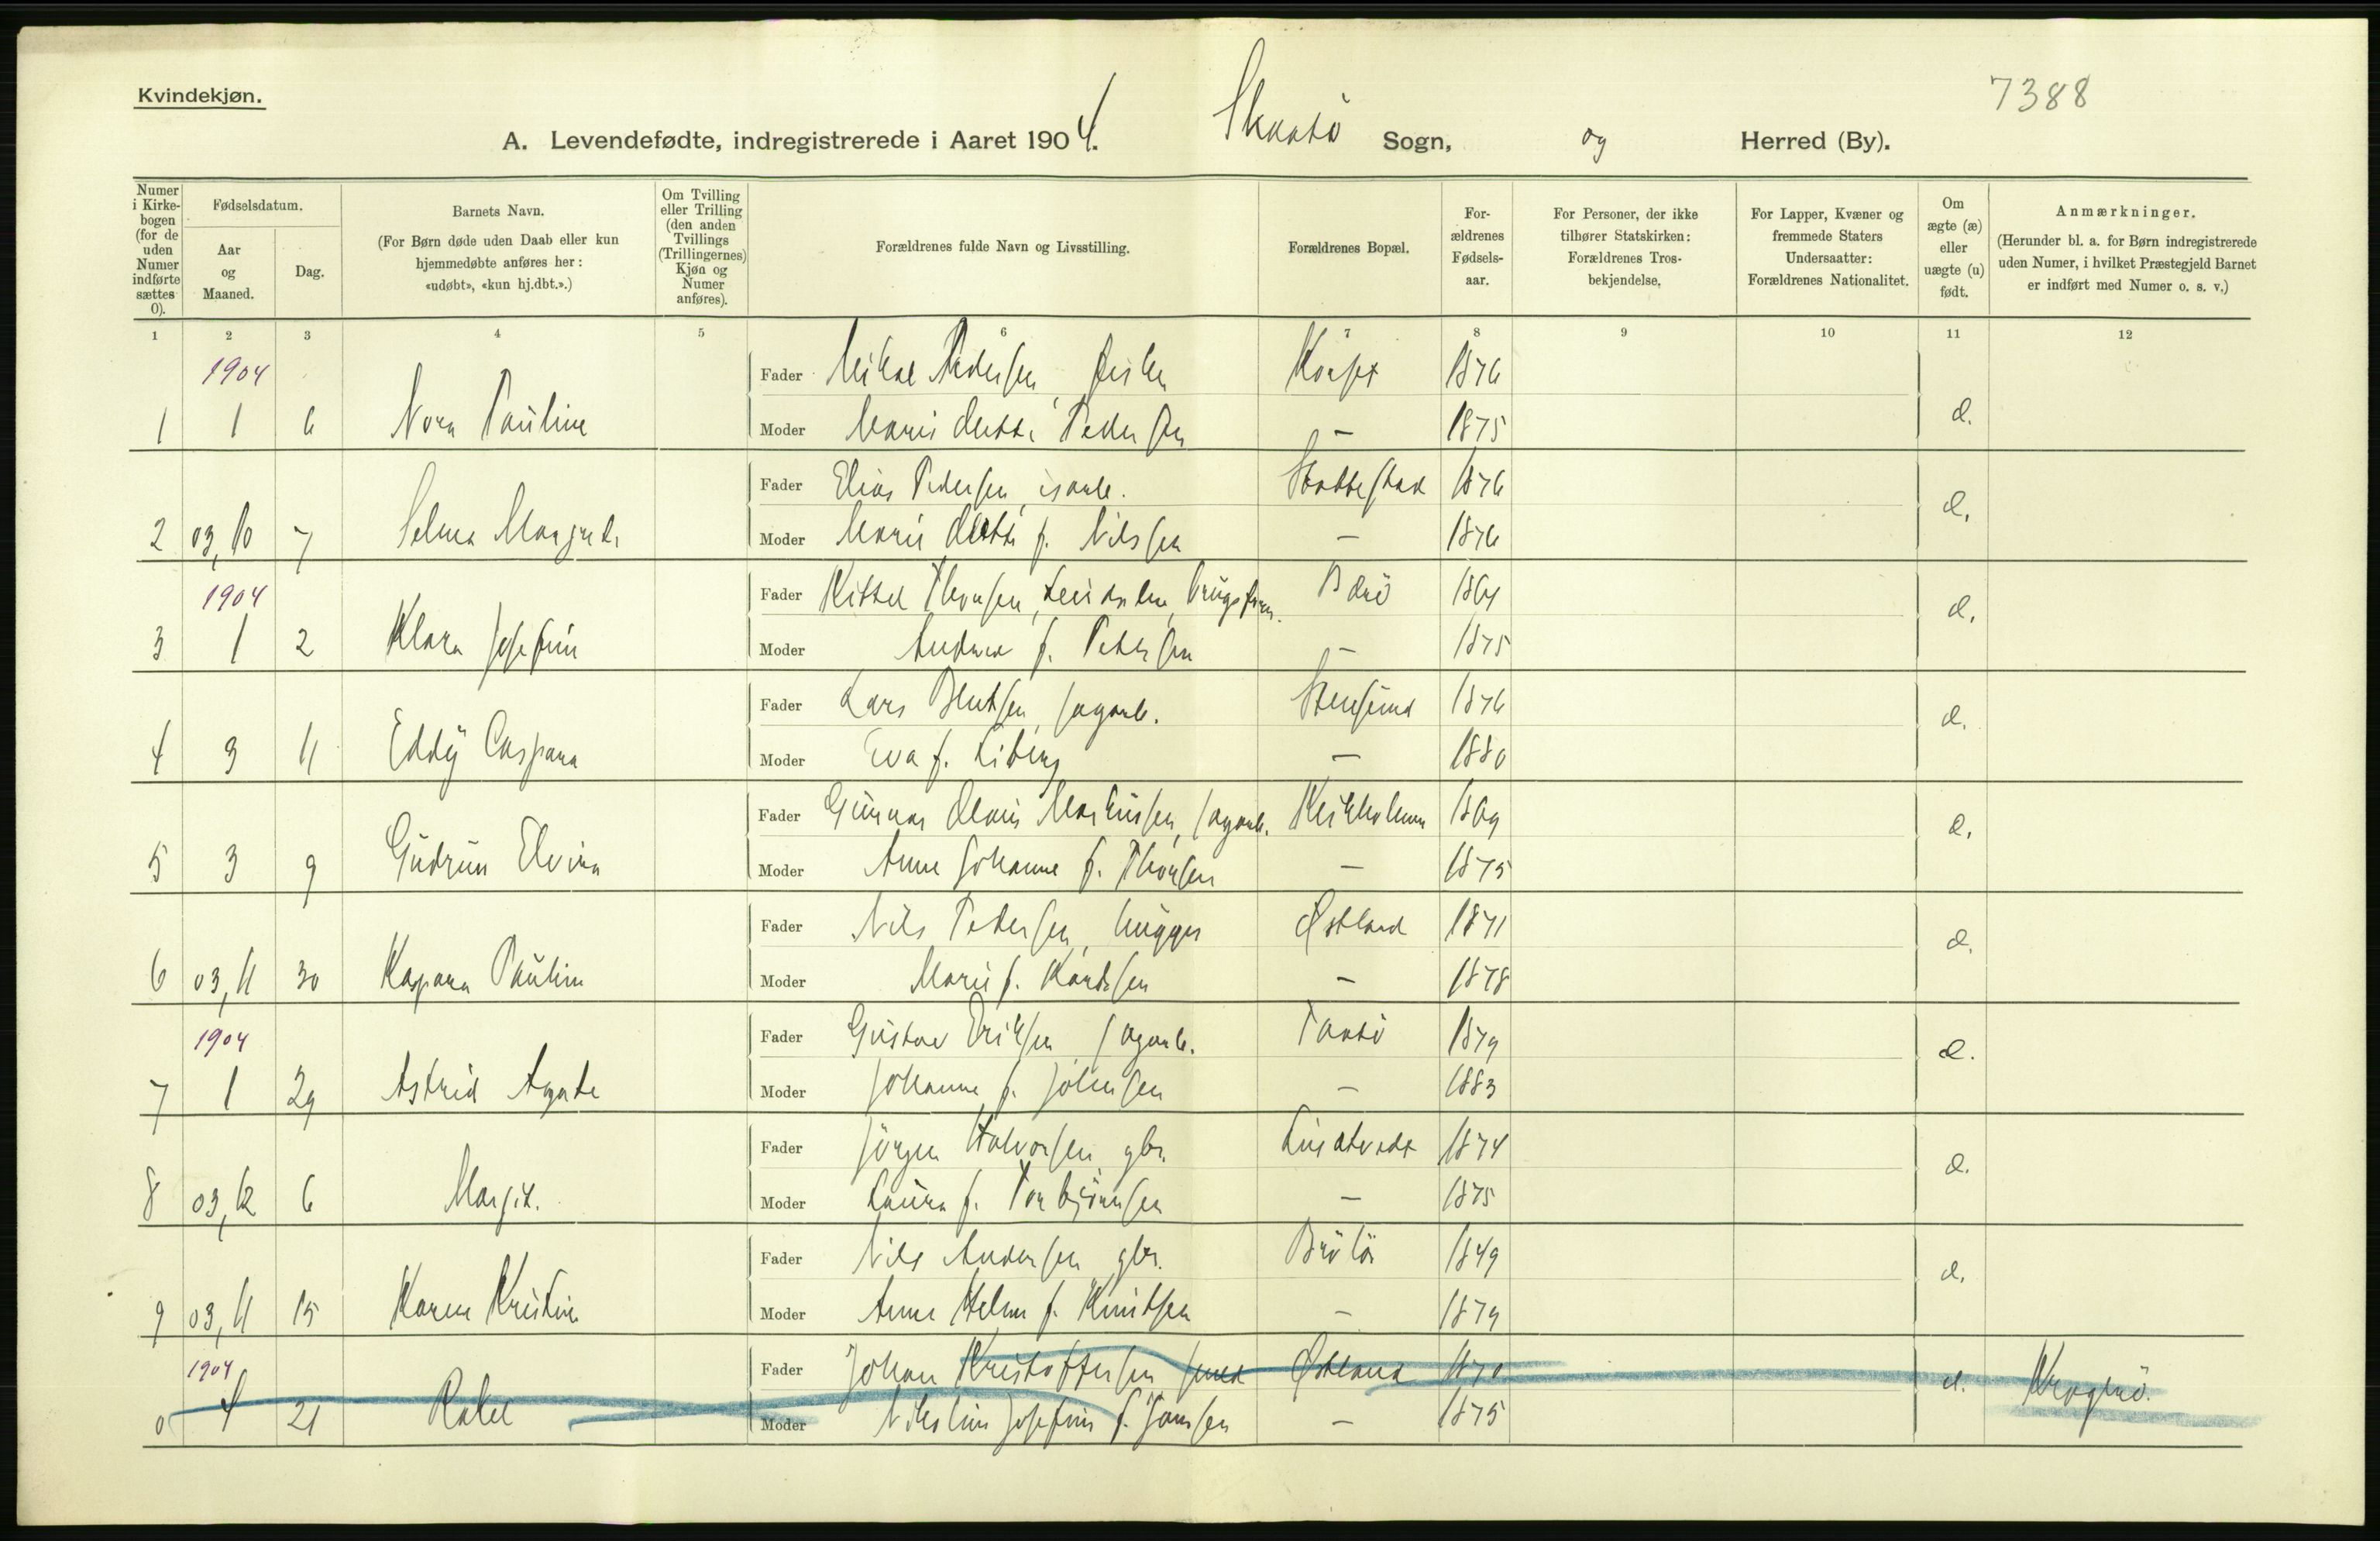 Kvindekjøn.
7388
A. Levendefødte, indregistrerede i Aaret 1904. Skaatö Sogn, og Herred (By).
Numer i Kirke-bogen (for de uden Numer indførte sættes 0).
Fødselsdatum.
Aar og Maaned.
Dag.
Barnets Navn.
(For Børn døde uden Daab eller kun hjemmedøbte anføres her: «udøbt», «kun hj.dbt.».)
Om Tvilling eller Trilling (den anden Tvillings (Trillingernes) Kjøn og Numer anføres).
Forældrenes fulde Navn og Livsstilling.
Forældrenes Bopæl.
For-ældrenes Fødsels-aar.
For Personer, der ikke tilhører Statskirken: Forældrenes Tros-bekjendelse.
For Lapper, Kvæner og fremmede Staters Undersaatter: Forældrenes Nationalitet.
Om ægte (æ) eller uægte (u) født.
Anmærkninger.
(Herunder bl. a. for Børn indregistrerede uden Numer, i hvilket Præstegjeld Barnet er indført med Numer o. s. v.)
1 2 3 4 5 6 7 8 9 10 11 12
1904
Fader Mikal Pedersen, fisker 1876
1 1 6 Nora Pauline æ.
Moder Marie Pedersen — 1875
Fader Elias Pedersen, isarb. Stabbestad 1876
2 03,10 7 Selma Margrete æ.
Moder Marie f. Nilssen — 1876
1904
Fader Kittel Thorsen, 1864
3 1 2 Klara Josefine æ.
Moder Andrea f. Petersen — 1875
Fader Lars Bentsen, sagarb. Stensund 1876
4 3 11 Eddy Caspara æ.
Moder Eva f. Liberg — 1880
Fader Gunnar Olaus Markussen, sagarb. Kirkholmen 1869
5 3 9 Gudrun Elvira æ.
Moder Anne Johanne f. Thorsen — 1875
Fader Nils Petersen, hugger Østland 1871
6 03,11 30 Kaspara Pauline æ.
Moder Marie f. — 1878
1904
Fader Gustav Eriksen sagarb. Taatö 1879
7 1 29 Astrid Agate æ.
Moder Johanne f. Johnsen — 1883
Fader Jörgen Halvorsen gbr. 1874
8 03,12 6 Margit. æ.
Moder Laura f. Torbjörnsen — 1875
Fader Nils Andersen gbr. 1849
9 03,11 15 Karen Kristine æ.
Moder Anne Helene f. Knutsen — 1879
1904
Fader Johan Kristoffersen smed Østland 1870
0 4 21 Rakel æ. Kragerö.
Moder Nikoline Josefine f. Jansen — 1875